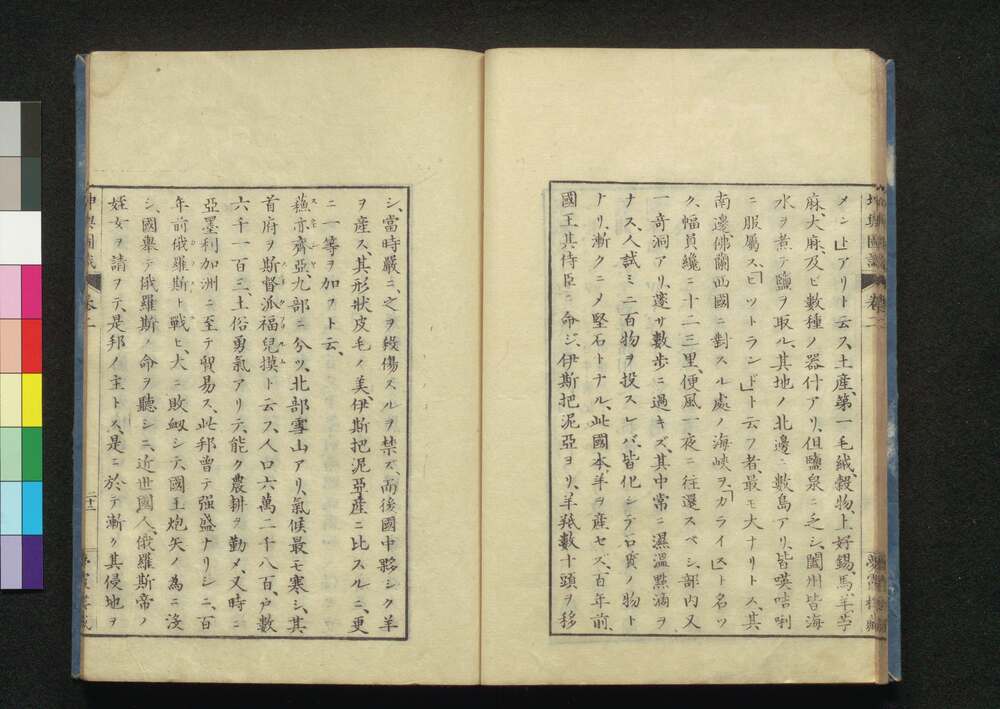 メン」アリト云ス、土産、第一毛絨、穀物、上好錫、馬、羊、苧
麻、大麻及ビ數種ノ器什アリ、但鹽泉ニ之シ、闔州皆海
水ヲ煮テ鹽ヲ取ル、其地ノ北邊ニ數島アリ、皆暎咭唎
ニ服屬ス、「ヒットランド」ト云フ者、最モ大ナリトス、其
南邊佛蘭西國ニ對スル處ノ海峽ヲ、「カライス」ト名ツ
ク、幅員纔ニ十二三里、便風一夜ニ往還スベシ、部内又
一奇洞アリ、邃サ數歩ニ過キズ、其中常ニ濕溫黙滴ヲ
ナス、人試ミニ百物ヲ投スレバ、皆化シテ石質ノ物ト
ナリ、漸クニメ堅石トナル、此國本羊ヲ産セズ、百年前、
國王其侍臣ニ命ジ、伊斯把泥亞ヨリ、羊羝數十頭ヲ移
坤輿圖識 卷二
シ、當時嚴ニ之ヲ殺傷スルヲ禁ズ、而後國中夥シク羊
ヲ産ス、其形状皮毛ノ美、伊斯把泥亞産ニ比スルニ、更
ニ一等ヲ加フト云、
蘇亦齊亞、九部ニ分ツ、北部雪山アリ、氣候最モ寒シ、其
首府ヲ斯督派福兒摸ト云フ、人口六萬二千八百、戸數
六千一百三、土俗勇氣アリテ、能ク農耕ヲ勤メ、又時ニ
亞墨利加洲ニ至テ貿易ス、此邦曽テ强盛ナリシニ、百
年前俄羅斯ト戰ヒ、大ニ敗衂シテ、國王炮矢ノ為ニ没
シ、國舉テ俄羅斯ノ命ヲ聽シニ、近世國人、俄羅斯帝ノ
姪女ヲ請ヲテ、是邦ノ主トス、是ニ於テ漸ク其侵地ヲ
坤輿圖識 卷二